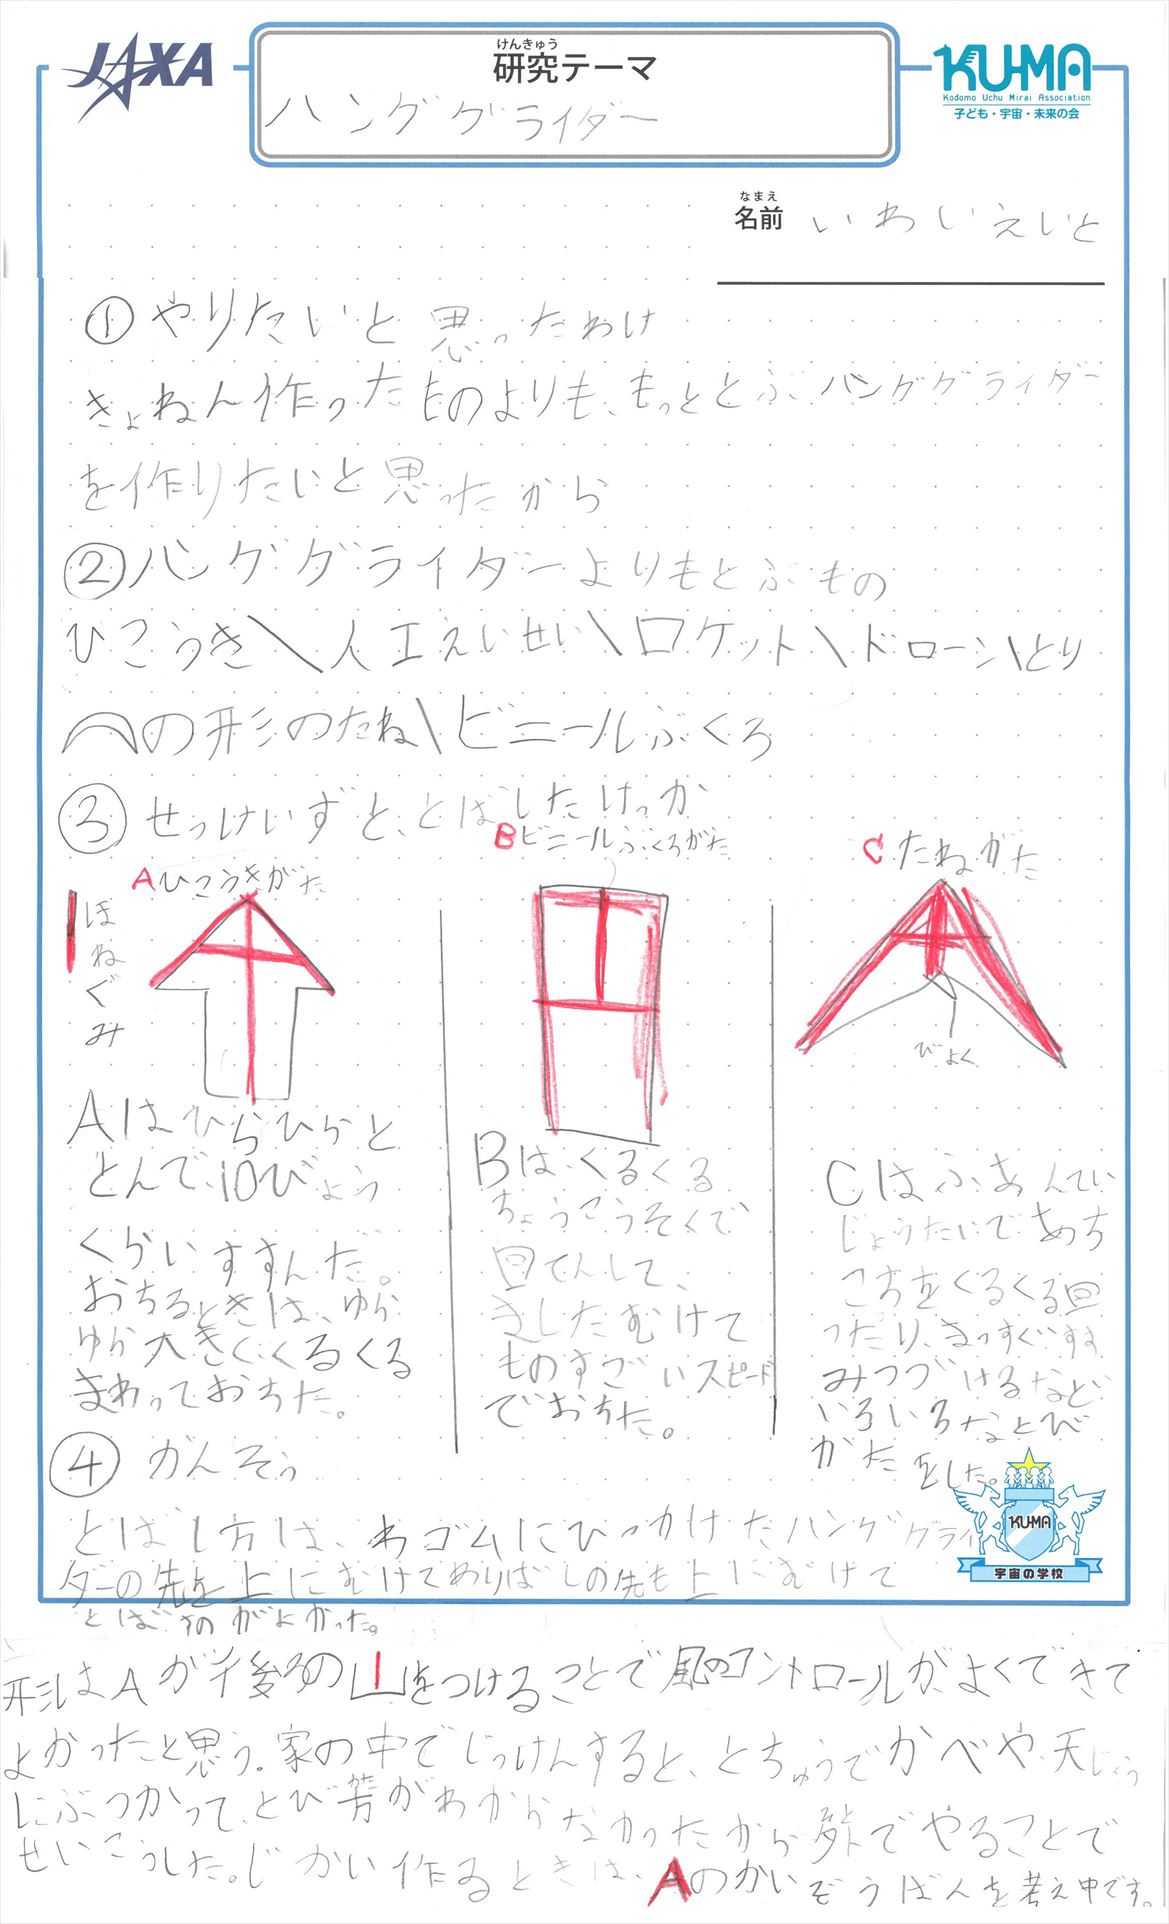 JAXA
けんきゅう
研究テーマ
ハンググライダー
KU-MA
Kodomo Uchu Mirai Association
子ども・宇宙・未来の会
なまえ
名前 いわいえいと
① やりたいと思ったわけ
きょねん作ったものよりも、もっととぶハンググライダー
を作りたいと思ったから
② ハンググライダーよりもとぶもの
ひこうき\人工えいせい\ロケット\ドローン\とり
の形のたね\ビニールぶくろ
③ せっけいずと、とばしたけっか
Aひこうきがた
ほねぐみ
Bビニールぶくろがた
Cたねがた
びよく
Aはひらひらと
とんで、10びょう
くらいすすんだ。
おちるときは、ゆら
ゆら大きくくるくる
まわっておちた。
Bは、くるくる
ちょうこうそくで
回てんして、
ました むけて
ものすごいスピード
でおちた。
Cはふあんてい
じょうたいであち
こちをくるくる回
ったり、まっすぐすす
みつづけるなど
いろいろなとび
がたをした。
④ かんそう
とばし方は、わゴムにひっかけたハンググライ
ダーの先を上にむけてわりばしの先も上にむけて
とばすのがよかった。
KU-MA
宇宙の学校
形はAが後ろの凵をつけることで風のコントロールがよくできて
よかったと思う。家の中でじっけんすると、とちゅうでかべや天じょう
にぶつかって、とび がわからなかったから でやることで
せいこうした。じかい作るときは、Aのかいぞうばんを考え中です。